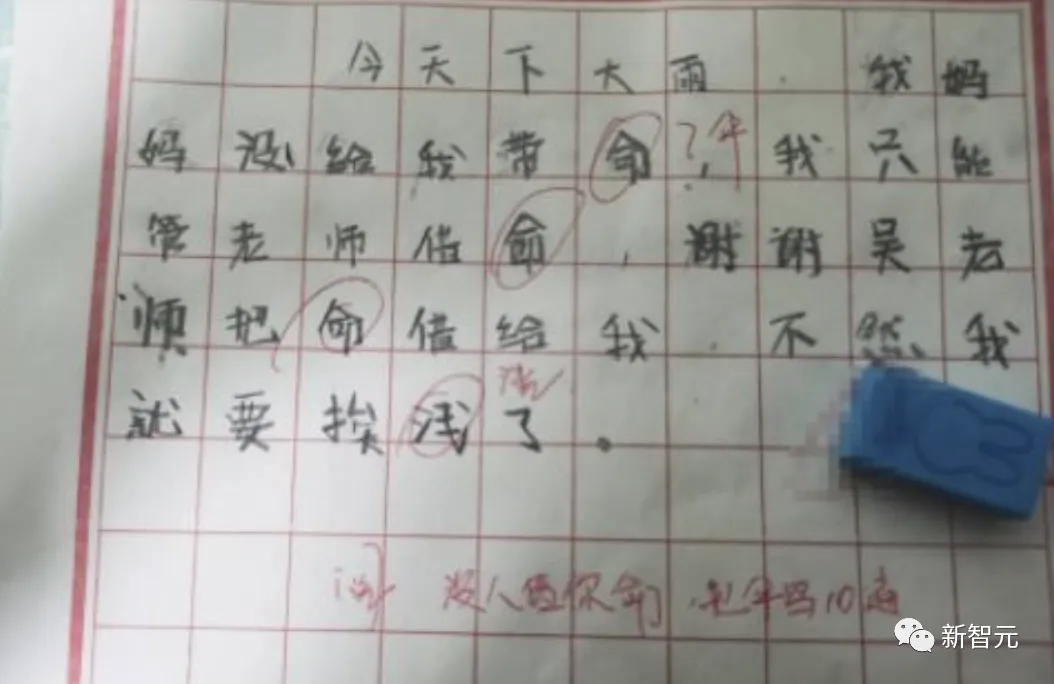 今天下大雨.我妈
妈没给我带命?伞,我只能
管老师借命,谢谢吴老
师把命借给我.不然我
就要挨浅了。
没人借你命,把伞写10遍
新智元